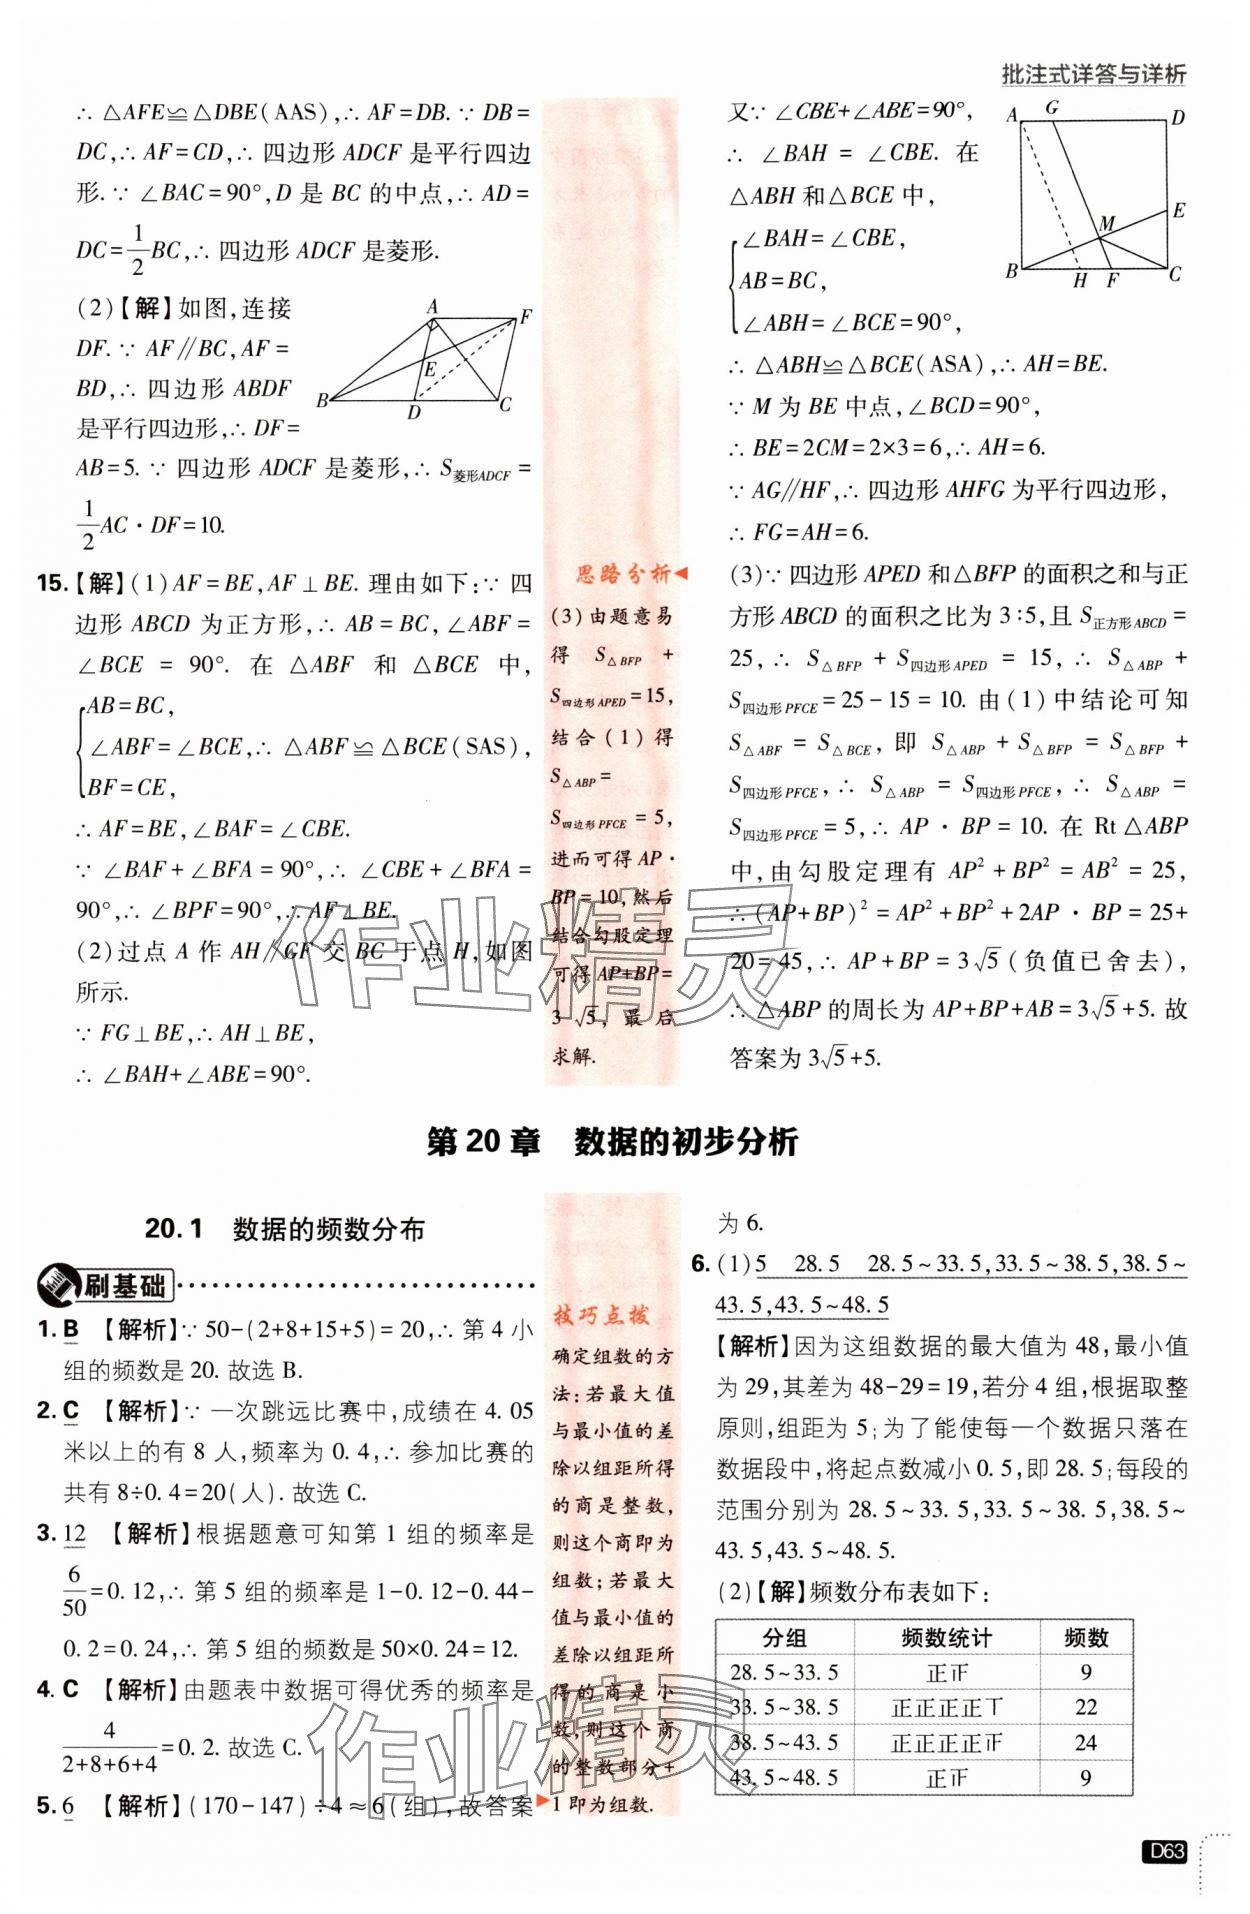 批注式详答与详析
∴ △AFE≌△DBE(AAS),∴ AF=DB. ∵ DB=
DC,∴ AF=CD,∴ 四边形 ADCF 是平行四边
形. ∵ ∠BAC=90°,D 是 BC 的中点,∴ AD=
DC=1/2BC,∴ 四边形 ADCF 是菱形.
(2)【解】如图,连接
DF. ∵ AF∥BC,AF=
BD,∴ 四边形 ABDF
是平行四边形,∴ DF=
A
F
E
B
D
C
AB=5. ∵ 四边形 ADCF 是菱形,∴ S菱形ADCF=
1/2AC·DF=10.
15.【解】(1)AF=BE,AF⊥BE. 理由如下:∵ 四
边形 ABCD 为正方形,∴ AB=BC,∠ABF=
∠BCE=90°. 在 △ABF 和 △BCE 中,
{AB=BC,
∠ABF=∠BCE,∴ △ABF≌△BCE(SAS),
BF=CE,
∴ AF=BE,∠BAF=∠CBE.
∵ ∠BAF+∠BFA=90°,∴ ∠CBE+∠BFA=
90°,∴ ∠BPF=90°,∴ AF⊥BE.
(2)过点 A 作 AH∥GF 交 BC 于点 H,如图
所示.
∵ FG⊥BE,∴ AH⊥BE,
∴ ∠BAH+∠ABE=90°.
思路分析
(3)由题意易
得 S△BFP+
S四边形APED=15,
结合(1)得
S△ABP=
S四边形PFCE=5,
进而可得 AP·
BP=10,然后
结合勾股定理
可得 AP+BP=
3√5,最后
求解.
又∵ ∠CBE+∠ABE=90°,
∴ ∠BAH=∠CBE. 在
△ABH 和△BCE 中,
{∠BAH=∠CBE,
AB=BC,
∠ABH=∠BCE=90°,
A
G
D
E
M
B
H
F
C
∴ △ABH≌△BCE(ASA),∴ AH=BE.
∵ M 为 BE 中点,∠BCD=90°,
∴ BE=2CM=2×3=6,∴ AH=6.
∵ AG∥HF,∴ 四边形 AHFG 为平行四边形,
∴ FG=AH=6.
(3)∵ 四边形 APED 和△BFP 的面积之和与正
方形 ABCD 的面积之比为 3∶5,且 S正方形ABCD=
25,∴ S△BFP+S四边形APED=15,∴ S△ABP+
S四边形PFCE=25-15=10. 由(1)中结论可知
S△ABF=S△BCE,即 S△ABP+S△BFP=S△BFP+
S四边形PFCE,∴ S△ABP=S四边形PFCE,∴ S△ABP=
S四边形PFCE=5,∴ AP·BP=10. 在 Rt△ABP
中,由勾股定理有 AP²+BP²=AB²=25,
∴(AP+BP)²=AP²+BP²+2AP·BP=25+
20=45,∴ AP+BP=3√5(负值已舍去),
∴ △ABP 的周长为 AP+BP+AB=3√5+5. 故
答案为 3√5+5.
作业精灵
第 20 章 数据的初步分析
20.1 数据的频数分布
刷基础
1. B 【解析】∵ 50-(2+8+15+5)=20,∴ 第 4 小
组的频数是 20. 故选 B.
2. C 【解析】∵ 一次跳远比赛中,成绩在 4.05
米以上的有 8 人,频率为 0.4,∴ 参加比赛的
共有 8÷0.4=20(人). 故选 C.
3. 12 【解析】根据题意可知第 1 组的频率是
6/50=0.12,∴ 第 5 组的频率是 1-0.12-0.44-
0.2=0.24,∴ 第 5 组的频数是 50×0.24=12.
4. C 【解析】由题表中数据可得优秀的频率是
4/(2+8+6+4)=0.2. 故选 C.
5. 6 【解析】(170-147)÷4≈6(组),故答案
技巧点拨
确定组数的方
法:若最大值
与最小值的差
除以组距所得
的商是整数,
则这个商即为
组数;若最大
值与最小值的
差除以组距所
得的商是小
数,则这个商
的整数部分+
1 即为组数.
为 6.
6. (1)5 28.5 28.5~33.5,33.5~38.5,38.5~
43.5,43.5~48.5
【解析】因为这组数据的最大值为 48,最小值
为 29,其差为 48-29=19,若分 4 组,根据取整
原则,组距为 5;为了能使每一个数据只落在
数据段中,将起点数减小 0.5,即 28.5;每段的
范围分别为 28.5~33.5,33.5~38.5,38.5~
43.5,43.5~48.5.
(2)【解】频数分布表如下:
分组 频数统计 频数
28.5~33.5 正𤴓 9
33.5~38.5 正正正正丅 22
38.5~43.5 正正正正𤴓 24
43.5~48.5 正𤴓 9
作业精灵
D63